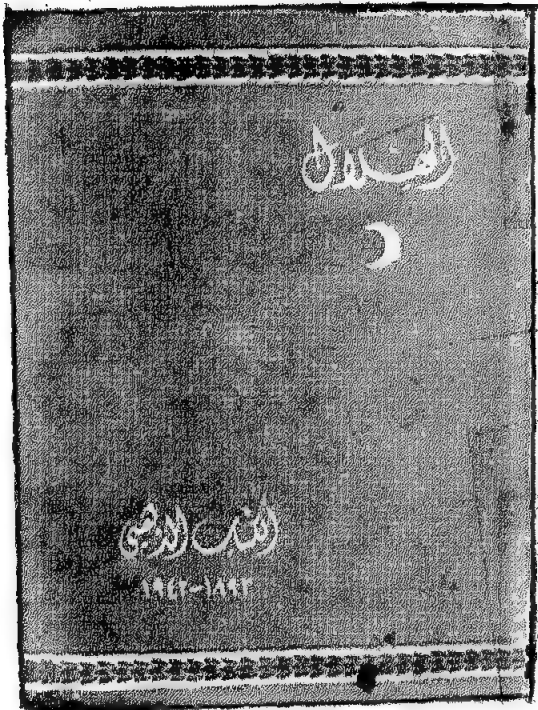 الهلال
الكتاب الذهبي
١٨٩٢-١٩٤٢